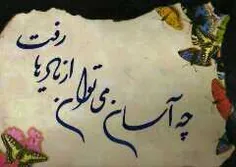 چه آسان می توان از یادها
رفت